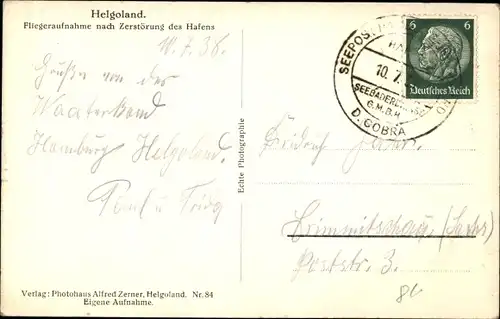 Helgoland.
Fliegeraufnahme nach Zerstörung des Hafens
10.7.38.
Grüße von der
Hamburg Helgoland.
Paul u.
Echte Photographie
SEEPOST
10.7.
SEEBÄDERDIENST
G.M.B.H
D. COBRA
6 6
Deutsches Reich
Friedrich
Crimmitschau (Sachs)
Poststr. 3.
Verlag: Photohaus Alfred Zerner, Helgoland. Nr. 84
Eigene Aufnahme.